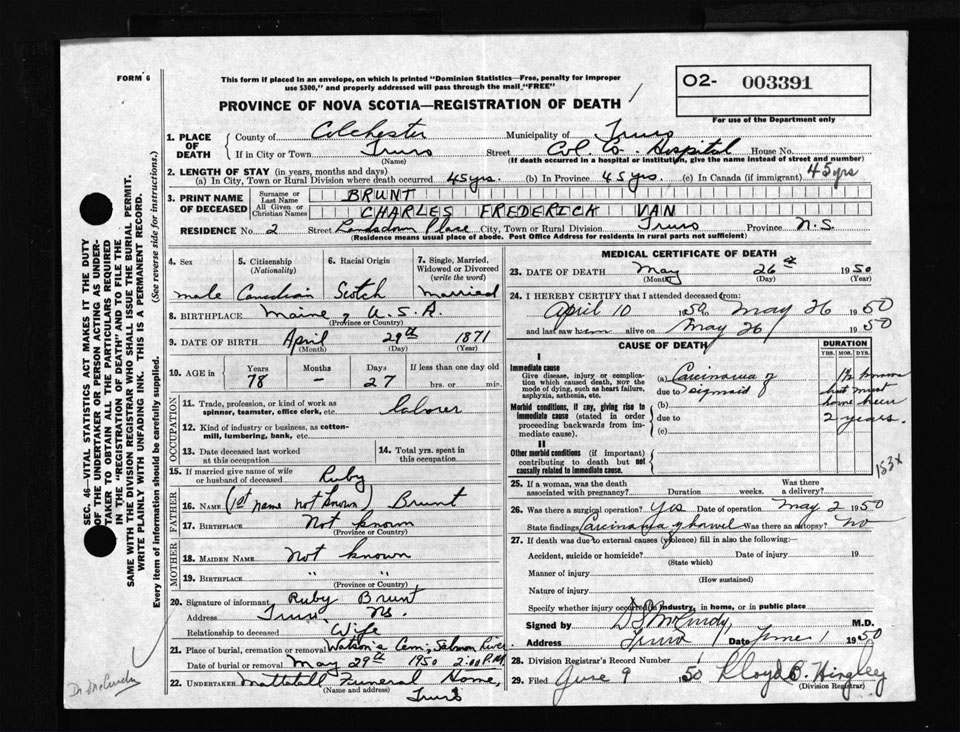 FORM 6
This form if placed in an envelope, on which is printed "Dominion Statistics—Free, penalty for improper
use $300," and properly addressed will pass through the mail "FREE"
O2- 003391
For use of the Department only
PROVINCE OF NOVA SCOTIA—REGISTRATION OF DEATH
1. PLACE OF DEATH
County of Colchester Municipality of Truro
If in City or Town Truro Street Col. Co. Hospital House No.
(Name) (If death occurred in a hospital or institution, give the name instead of street and number)
2. LENGTH OF STAY (in years, months and days)
(a) In City, Town or Rural Division where death occurred 45 yrs. (b) In Province 45 yrs. (c) In Canada (if immigrant) 45 yrs
3. PRINT NAME OF DECEASED
Surname or Last Name BRUNT
All Given or Christian Names CHARLES FREDERICK VAN
RESIDENCE No. 2 Street Lansdown Place City, Town or Rural Division Truro Province N.S.
(Residence means usual place of abode. Post Office Address for residents in rural parts not sufficient)
4. Sex
male
5. Citizenship (Nationality)
Canadian
6. Racial Origin
Scotch
7. Single, Married, Widowed or Divorced (write the word)
married
8. BIRTHPLACE Maine, U.S.A.
(Province or Country)
9. DATE OF BIRTH April 29th 1871
(Month) (Day) (Year)
10. AGE in Years Months Days If less than one day old
78 - 27 hrs. or min.
OCCUPATION
11. Trade, profession, or kind of work as
spinner, teamster, office clerk, etc. laborer
12. Kind of industry or business, as cotton-
mill, lumbering, bank, etc.
13. Date deceased last worked
at this occupation
14. Total yrs. spent in
this occupation
15. If married give name of wife
or husband of deceased Ruby
FATHER
16. NAME (1st name not known) Brunt
17. BIRTHPLACE Not known
(Province or Country)
MOTHER
18. MAIDEN NAME Not known
19. BIRTHPLACE " "
(Province or Country)
20. Signature of informant Ruby Brunt
Address Truro, N.S.
Relationship to deceased Wife
21. Place of burial, cremation or removal Watson's Cem., Salmon River
Date of burial or removal May 29th 1950 2:00 P.M.
22. UNDERTAKER Mattatall Funeral Home,
(Name and address) Truro
MEDICAL CERTIFICATE OF DEATH
23. DATE OF DEATH May 26th 1950
(Month) (Day) (Year)
24. I HEREBY CERTIFY that I attended deceased from:
April 10 1950 to May 26 1950
and last saw him alive on May 26 1950
CAUSE OF DEATH
DURATION
YRS. MOS. DYS.
I
Immediate cause
Give disease, injury or complica-
tion which caused death, not the
mode of dying, such as heart failure,
asphyxia, asthenia, etc.
(a) Carcinoma of
due to sigmoid
Morbid conditions, if any, giving rise to
immediate cause (stated in order
proceeding backwards from im-
mediate cause).
(b)
due to
(c)
but must
have been
2 years.
II
Other morbid conditions (if important)
contributing to death but not
causally related to immediate cause.
153x
25. If a woman, was the death
associated with pregnancy? Duration weeks. Was there
a delivery?
26. Was there a surgical operation? Yes Date of operation May 2 1950
State findings Carcinoma of bowel Was there an autopsy? No
27. If death was due to external causes (violence) fill in also the following:
Accident, suicide or homicide? Date of injury 19
(State which)
Manner of injury
(How sustained)
Nature of injury
Specify whether injury occurred in industry, in home, or in public place
Signed by D S McCurdy M.D.
Address Truro Date June 1 1950
28. Division Registrar's Record Number
29. Filed June 9 1950 Lloyd B. Hingley
(Division Registrar)
Dr. McCurdy
SEC. 46—VITAL STATISTICS ACT MAKES IT THE DUTY
OF THE UNDERTAKER OR PERSON ACTING AS UNDER-
TAKER TO OBTAIN ALL THE PARTICULARS REQUIRED
IN THE "REGISTRATION OF DEATH" AND TO FILE THE
SAME WITH THE DIVISION REGISTRAR WHO SHALL ISSUE THE BURIAL PERMIT.
WRITE PLAINLY WITH UNFADING INK. THIS IS A PERMANENT RECORD.
Every item of information should be carefully supplied. (See reverse side for instructions.)